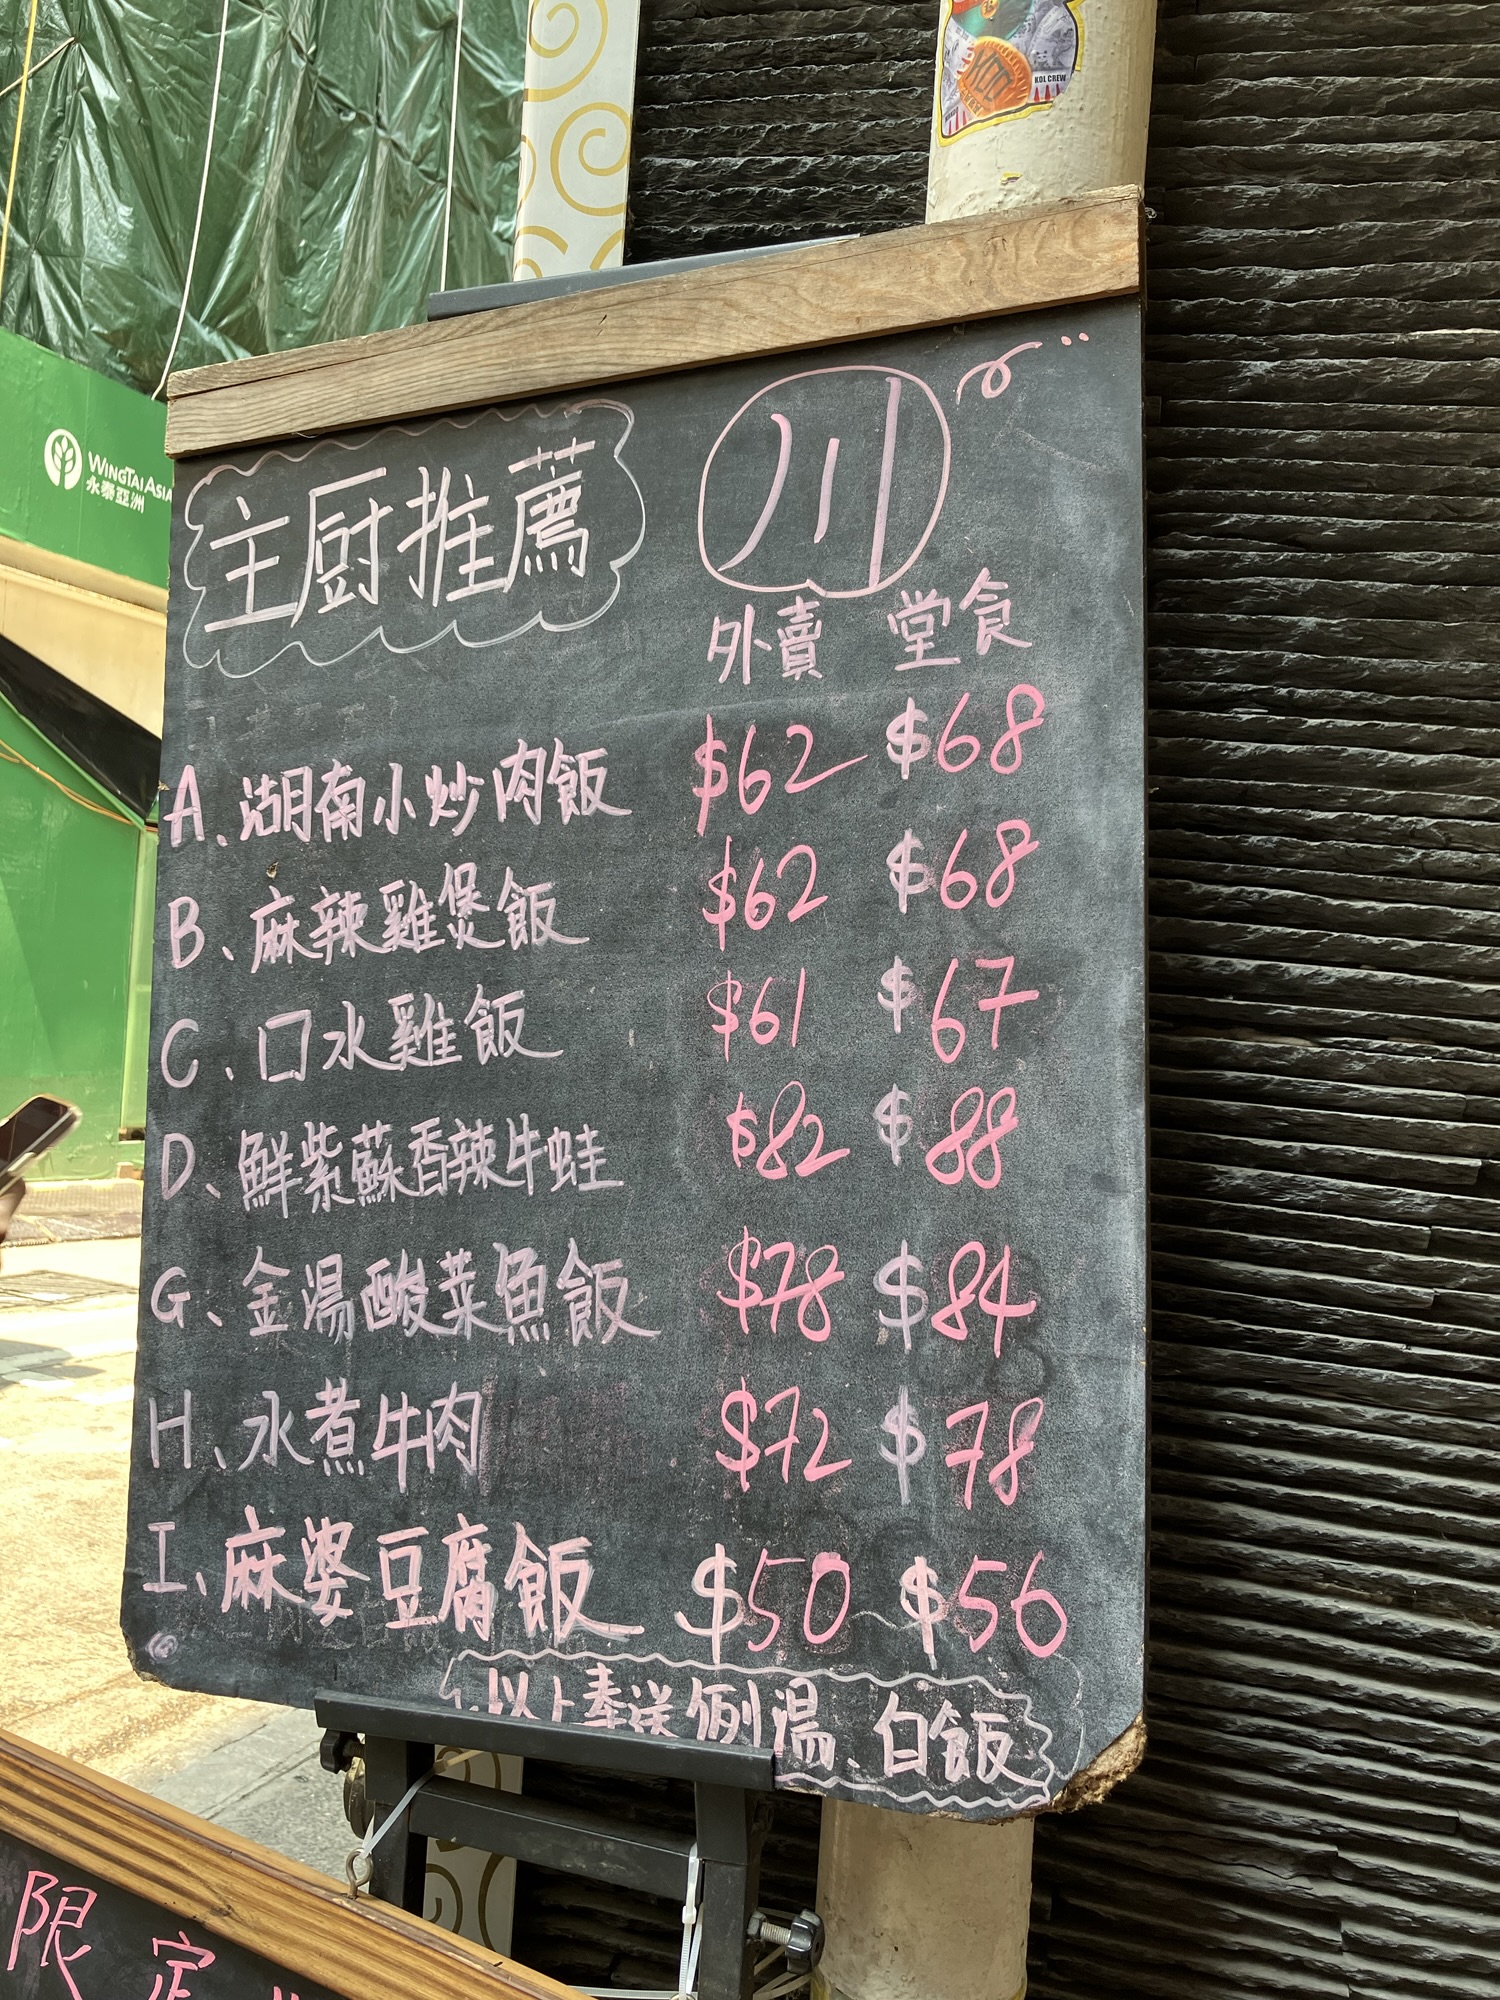 KOL CREW
WING TAI ASIA
永泰亞洲
主厨推薦
川
外賣 堂食
A、湖南小炒肉飯 $62 $68
B、麻辣雞煲飯 $62 $68
C、口水雞飯 $61 $67
D、鮮紫蘇香辣牛蛙 $82 $88
G、金湯酸菜魚飯 $78 $84
H、水煮牛肉 $72 $78
I、麻婆豆腐飯 $50 $56
以上奉送例湯、白飯
限定